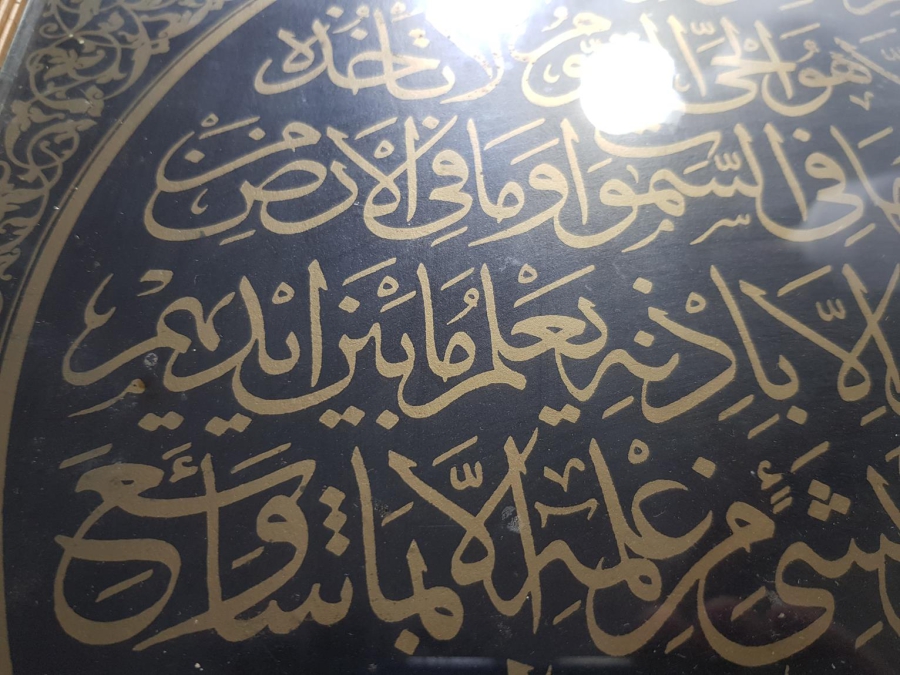 هُوَ الْحَيُّ الْقَيُّومُ لَا تَأْخُذُهُ
فِي السَّمٰوَاتِ وَمَا فِي الْاَرْضِ مَنْ
اِلَّا بِاِذْنِهِ يَعْلَمُ مَا بَيْنَ اَيْدِيهِمْ
بِشَيْءٍ مِنْ عِلْمِهِ اِلَّا بِمَا شَاءَ وَسِعَ